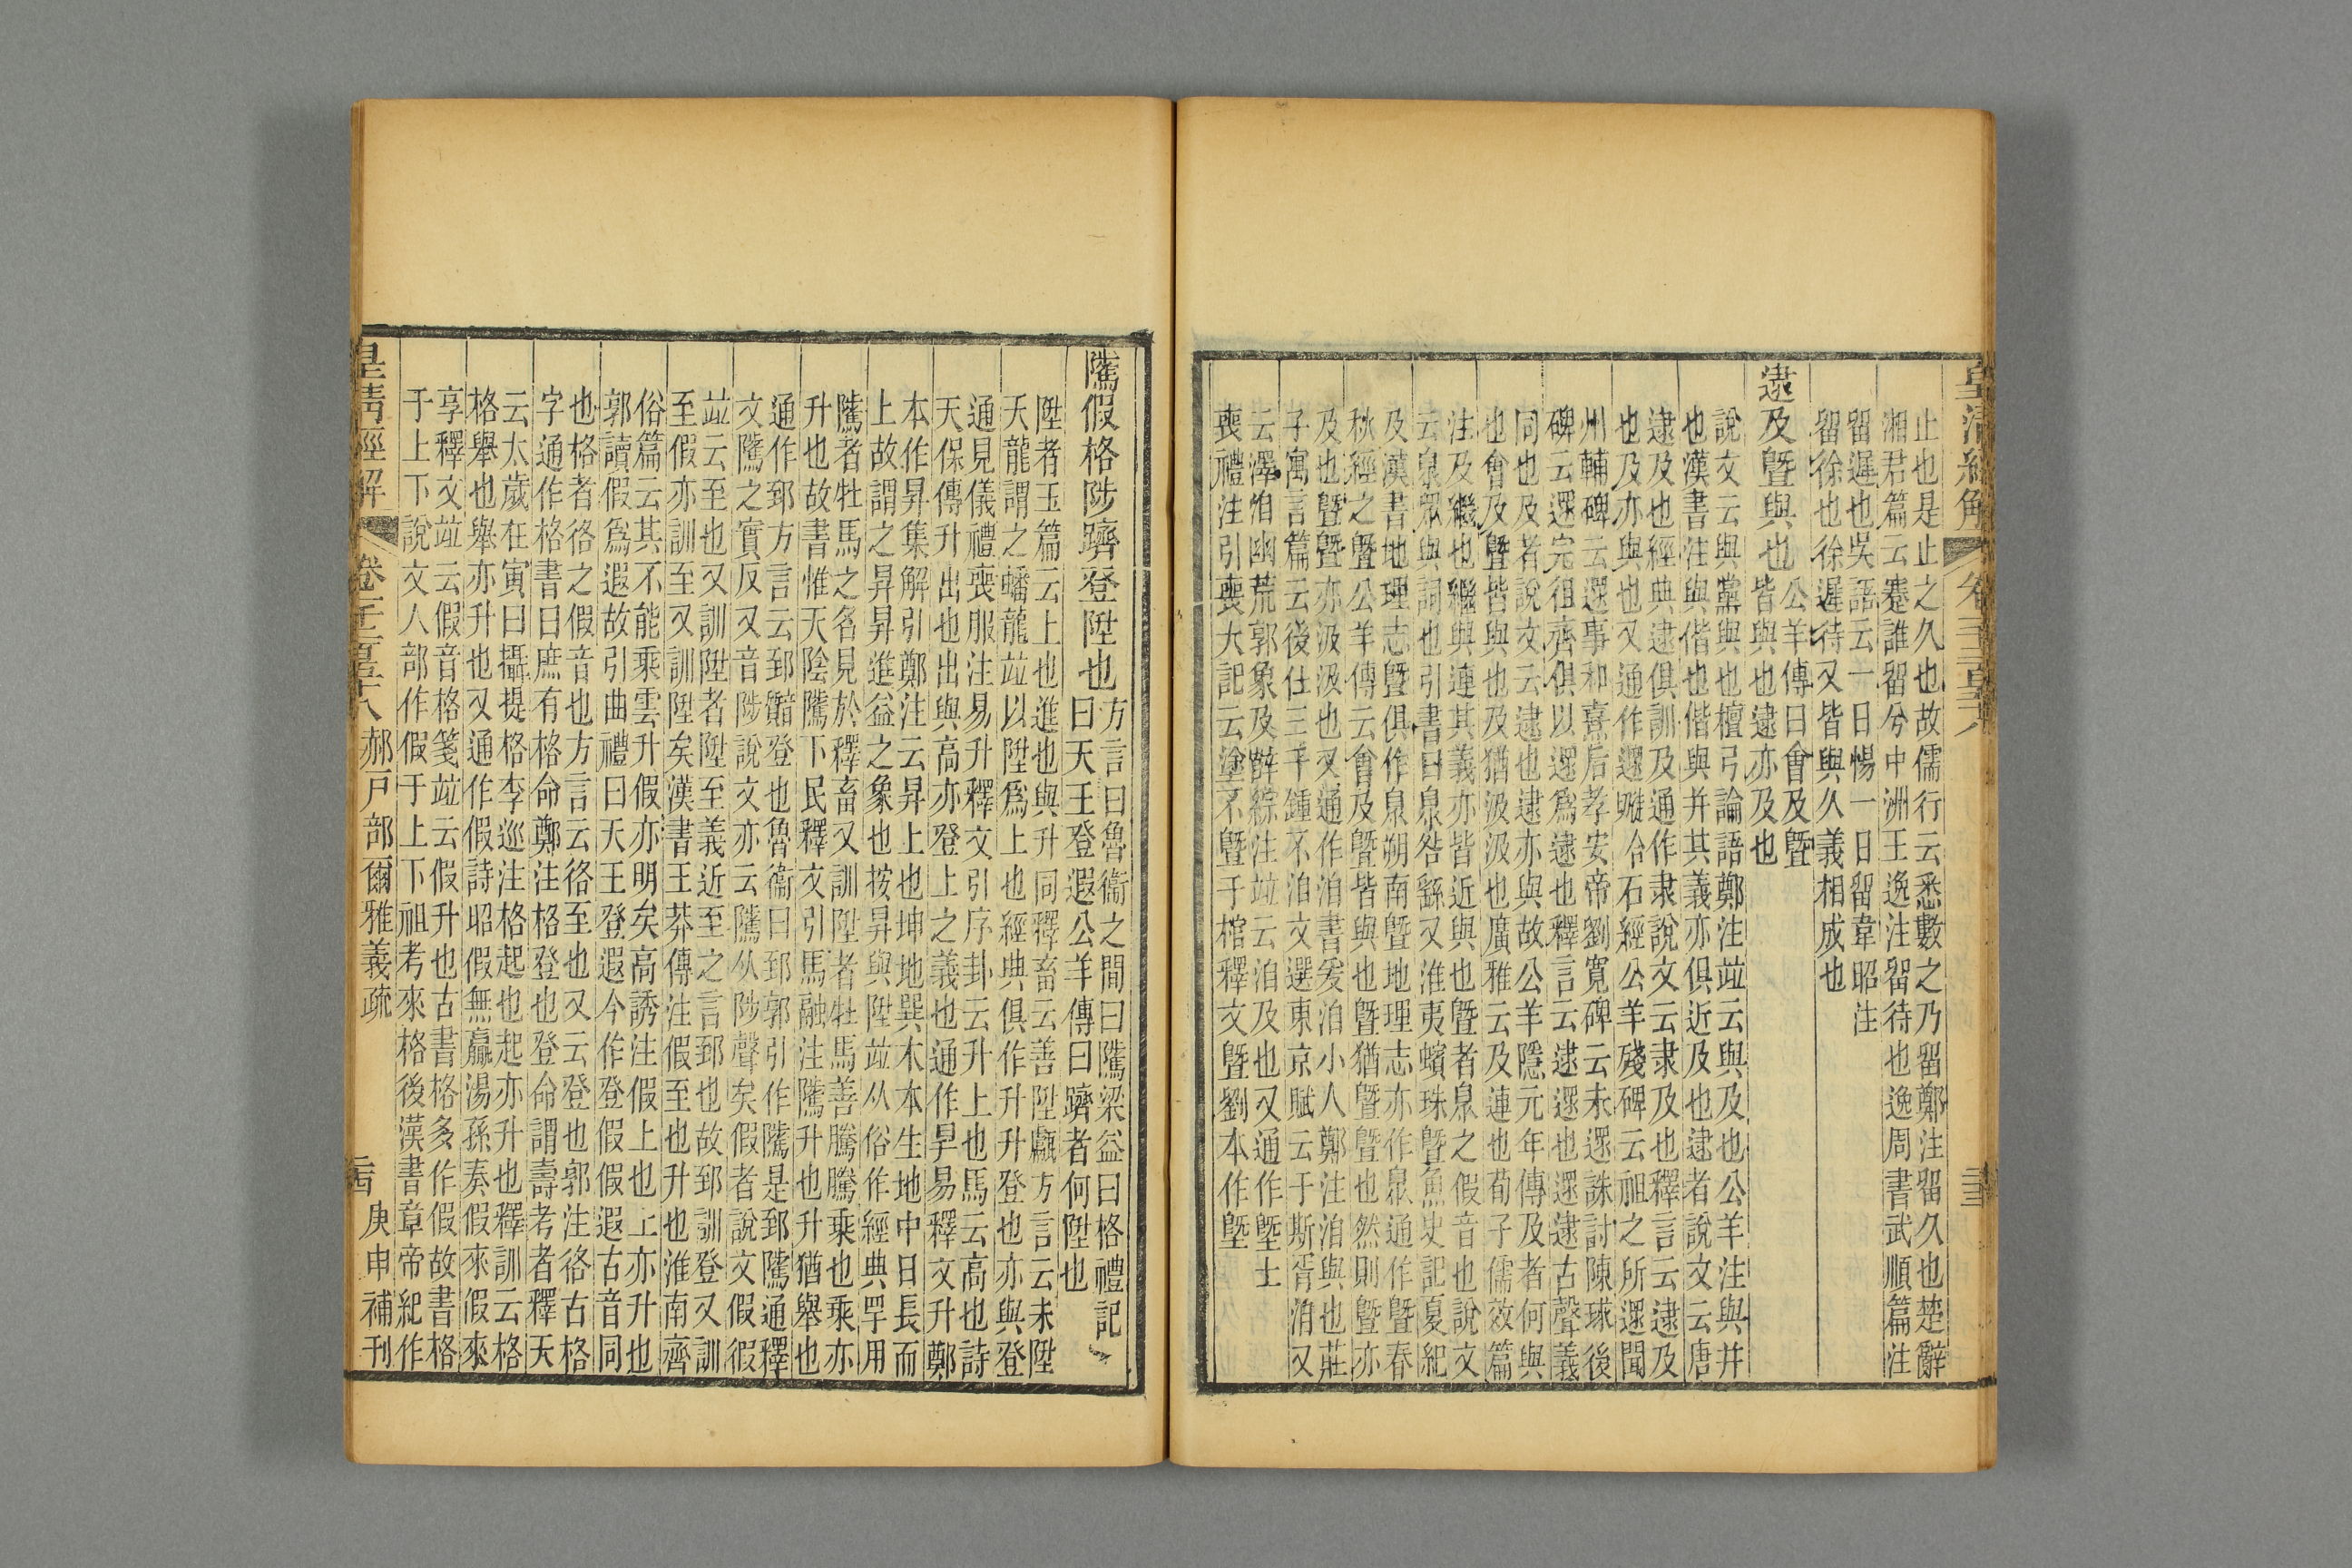 皇清經解 卷一千二百五十八
止也是止之久也故儒行云悉數之乃留鄭注留久也楚辭
湘君篇云蹇誰留兮中洲王逸注留待也逸周書武順篇注
留遲也吳語云一日惕一日留韋昭注
留徐也徐遲待又皆與久義相成也
逮及暨與也
公羊傳曰會及暨
皆與也逮亦及也
說文云與黨與也檀弓論語鄭注竝云與及也公羊注與并
也漢書注與偕也偕與并其義亦俱近及也逮者說文云唐
逮及也經典逮俱訓及通作隶說文云隶及也釋言云逮及
也及亦與也又通作遝㗱合石經公羊殘碑云祖之所遝聞
州輔碑云遝事和熹后孝安帝劉寬碑云未遝誅討陳球後
碑云遝完徂齊俱以遝爲逮也釋言云逮遝也遝逮古聲義
同也及者說文云逮也逮亦與故公羊隱元年傳及者何與
也會及暨皆與也及猶汲汲也廣雅云及連也荀子儒效篇
注及繼也繼與連其義亦皆近與也暨者臮之假音也說文
云臮眾與詞也引書曰臮咎繇又淮夷蠙珠暨魚史記夏紀
及漢書地理志暨俱作臮朔南暨地理志亦作臮通作暨春
秋經之暨公羊傳云會及暨皆與也暨猶暨暨也然則暨亦
及也暨暨亦汲汲也又通作洎書爰洎小人鄭注洎與也莊
子寓言篇云後仕三千鍾不洎文選東京賦云于斯胥洎又
云澤洎幽荒郭象及薛綜注竝云洎及也又通作塈士
喪禮注引喪大記云塗不暨于棺釋文暨劉本作塈
騭假格陟躋登陞也
方言曰魯衞之間曰騭梁益曰格禮記
曰天王登遐公羊傳曰躋者何陞也
陞者玉篇云上也進也與升同釋畜云善陞甗方言云未陞
天龍謂之蟠龍竝以陞爲上也經典俱作升升登也亦與登
通見儀禮喪服注易升釋文引序卦云升上也馬云高也詩
天保傳升出也出與高亦登上之義也通作昇易釋文升鄭
本作昇集解引鄭注云昇上也坤地巽木木生地中日長而
上故謂之昇昇進益之象也按昇與陞竝从俗作經典罕用
騭者牡馬之名見於釋畜又訓陞者牡馬善騰騰乘也乘亦
升也故書惟天陰騭下民釋文引馬融注騭升也升猶舉也
通作郅方言云郅䠠登也魯衞曰郅郭引作騭是郅騭通釋
文騭之實反又音陟說文亦云騭从陟聲矣假者說文假徦
竝云至也又訓陞者陞至義近至之言郅也故郅訓登又訓
至假亦訓至又訓陞矣漢書王莽傳注假至也升也淮南齊
俗篇云其不能乘雲升假亦明矣高誘注假上也上亦升也
郭讀假爲遐故引曲禮曰天王登遐今作登假假遐古音同
也格者佫之假音也方言云佫至也又云登也郭注佫古格
字通作格書曰庶有格命鄭注格登也登命謂壽考者釋天
云太歲在寅曰攝提格李巡注格起也起亦升也釋訓云格
格舉也舉亦升也又通作假詩昭假無贏湯孫奏假來假來
享釋文竝云假音格箋竝云假升也古書格多作假故書格
于上下說文人部作假于上下祖考來格後漢書章帝紀作
皇清經解 卷一千二百五十八 郝戶部爾雅義疏 庚申補刊